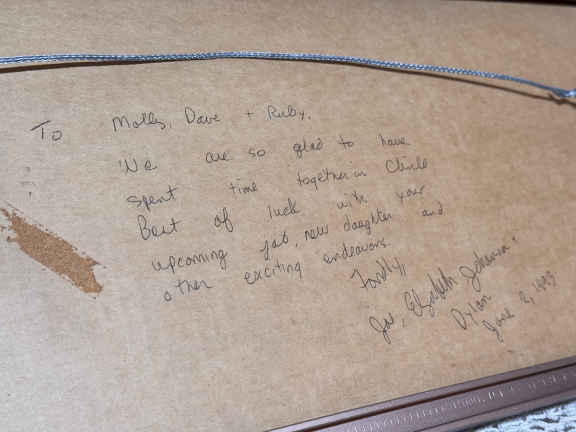 To Molly, Dave + Ruby,
We are so glad to have
spent time together in Chinle
Best of luck with your
upcoming job, new daughter and
other exciting endeavors.
Fondly,
Joe, Elizabeth Johnson +
Dylan
June 2, 1999